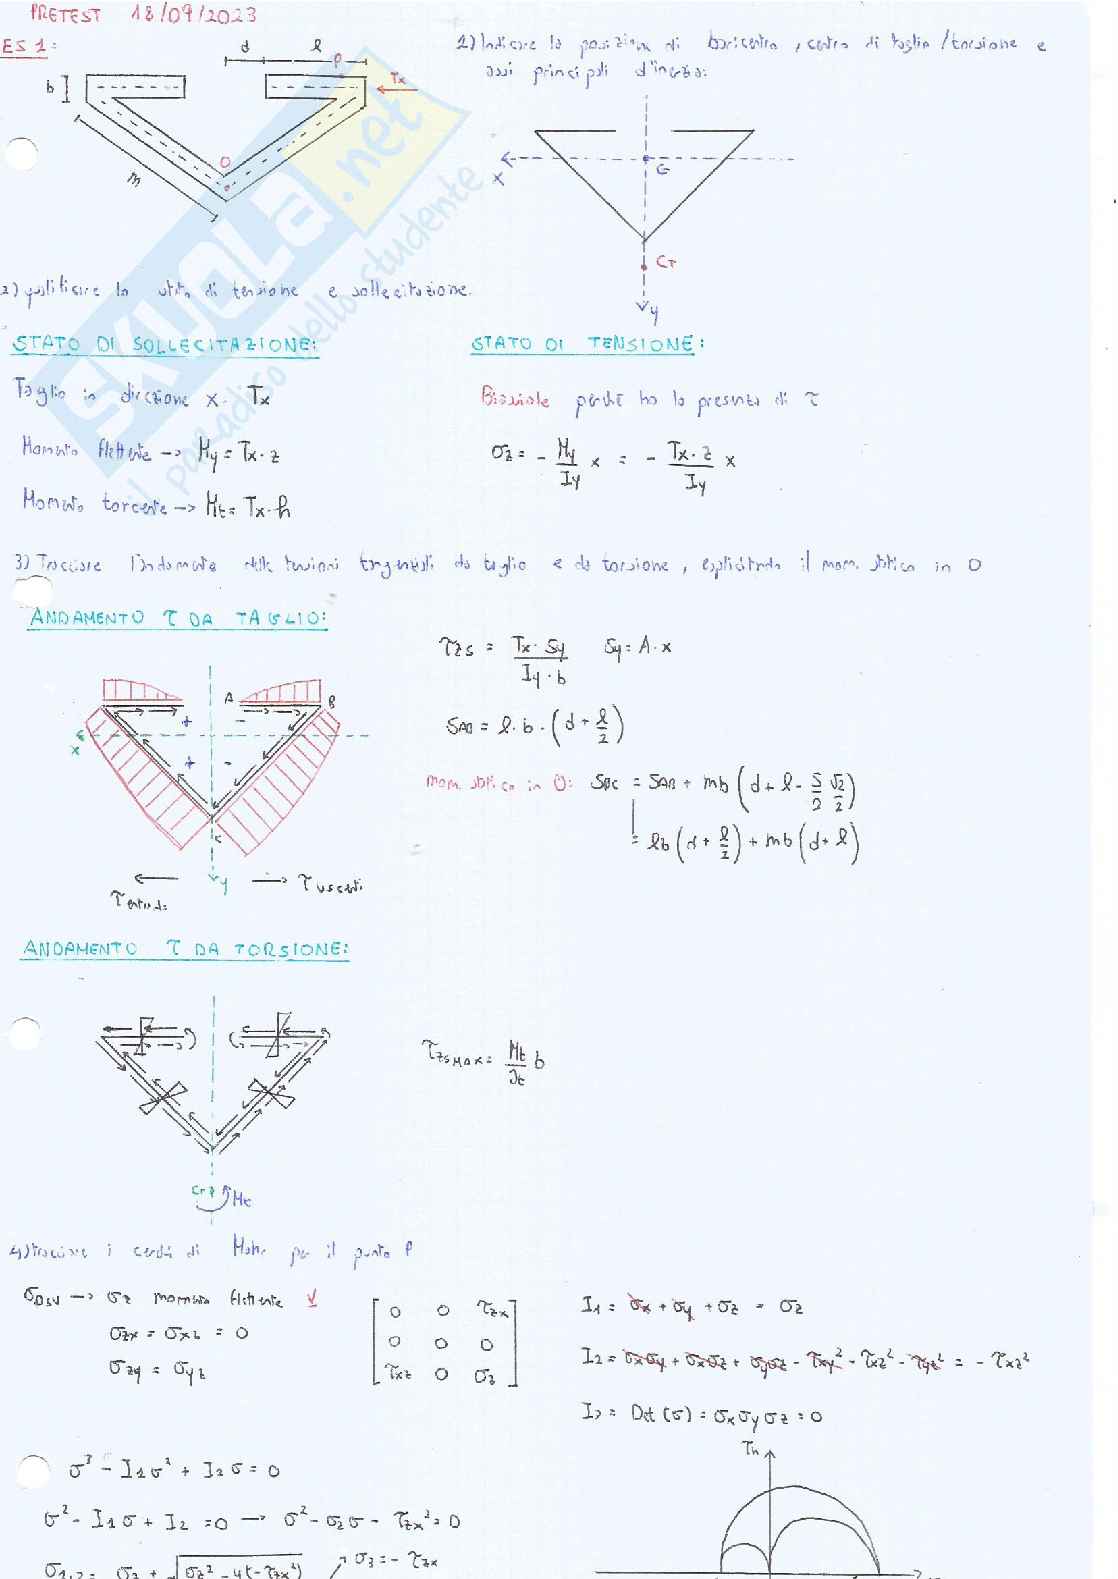 PRETEST 18/09/2023
ES 1:
d l
P
b
Tx
m
O
1) Indicare la posizione di baricentro, centro di taglio/torsione e
assi principali d'inerzia:
x
G
CT
y
2) qualificare lo stato di tensione e sollecitazione.
STATO DI SOLLECITAZIONE:
STATO DI TENSIONE:
Taglio in direzione x. Tx
Biassiale perché ho la presenza di τ
Momento flettente -> My = Tx·z
σz = - My/Iy x = - Tx·z/Iy x
Momento torcente -> Mt = Tx·h
3) Tracciare l'andamento delle tensioni tangenziali da taglio e da torsione, esplicitando il mom. statico in O
ANDAMENTO τ DA TAGLIO:
τzs = Tx·Sy/Iy·b Sy = A·x
A B
+ -
x
+ -
C
y
SAB = l·b·(d + l/2)
mom. statico in O: SBC = SAB + mb (d + l - s/2 √2/2)
= lb (d + l/2) + mb (d + l)
τ entranti
τ uscenti
ANDAMENTO τ DA TORSIONE:
τzs MAX = Mt/Jt b
CT
Mt
4) tracciare i cerchi di Mohr per il punto P
σDSV -> σz momento flettente
σzx = σxz = 0
σzy = σyz
0 0 τzx
0 0 0
τxz 0 σz
I1 = σx + σy + σz = σz
I2 = σxσy + σxσz + σyσz - τxy² - τxz² - τyz² = - τxz²
I3 = Det (σ) = σxσyσz = 0
Tn
σ³ - I1σ² + I2σ = 0
σ² - I1σ + I2 = 0 -> σ² - σzσ - τzx² = 0
σ1,2 = σz ± √σz² - 4(-τzx²)
σ3 = - τzx